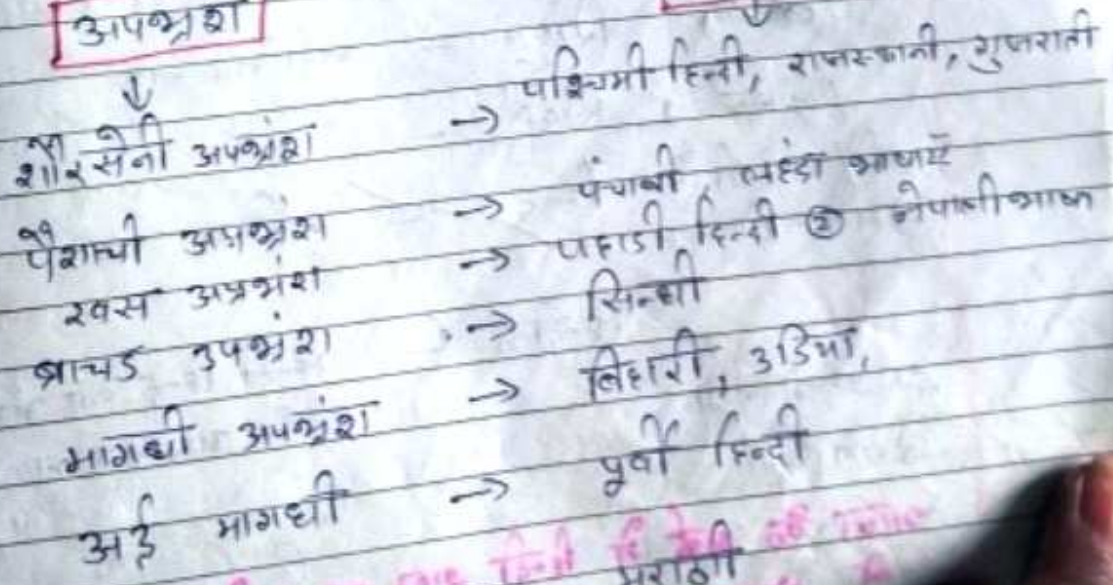 अपभ्रंश
शौरसेनी अपभ्रंश → पश्चिमी हिन्दी, राजस्थानी, गुजराती
पैशाची अपभ्रंश → पंजाबी, लहंदा भाषाएँ
खस अपभ्रंश → पहाडी हिन्दी ② नेपाली भाषा
ब्राचड अपभ्रंश → सिन्धी
मागधी अपभ्रंश → बिहारी, उडिया,
अर्ई मागधी → पूर्वी हिन्दी
मराठी